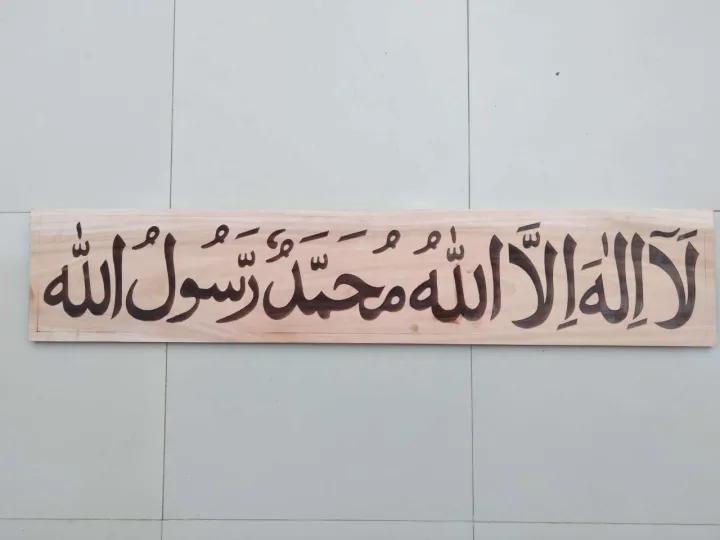 لَآ اِلٰهَ اِلَّا اللّٰهُ مُحَمَّدٌ رَّسُولُ اللّٰه